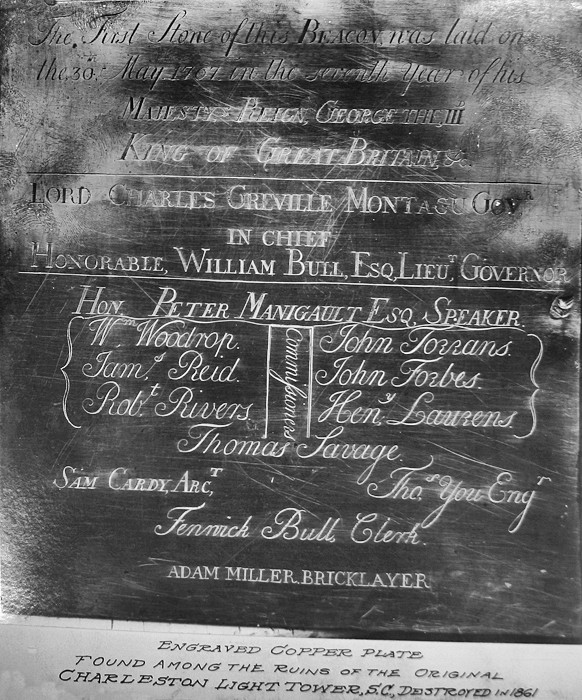 The First Stone of this BEACON, was laid on
the 30th May 1767 in the seventh Year of his
MAJESTYS REIGN, GEORGE THE III
KING OF GREAT BRITAIN, &c.
LORD CHARLES GREVILLE MONTAGU GOVR
IN CHIEF
HONORABLE, WILLIAM BULL, ESQ, LIEUT, GOVERNOR
HON. PETER MANIGAULT ESQ. SPEAKER.
Wm Woodrop.
Jams Reid.
Robt Rivers
Commissioners
John Torrans.
John Forbes.
Heny Laurens
Thomas Savage.
SAM CARDY, ARCT,
Thos You Engr
Fenwick Bull, Clerk.
ADAM MILLER. BRICKLAYER
ENGRAVED COPPER PLATE
FOUND AMONG THE RUINS OF THE ORIGINAL
CHARLESTON LIGHT TOWER, S.C., DESTROYED IN 1861